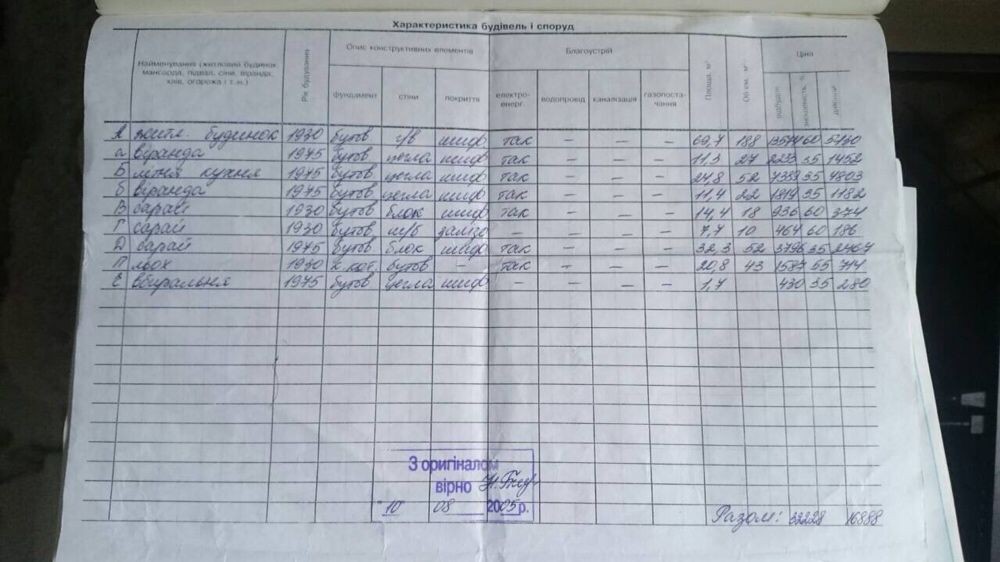 Характеристика будівель і споруд
Найменування (житловий будинок, мансарда, підвал, сіни, віранда, хлів, огорожа і т.п.)
Рік будування
Опис конструктивних елементів
фундамент стіни покриття
Благоустрій
електро-енерг. водопровід каналізація газопоста-чання
Площа, м²
Об'єм, м³
Ціна
відбудівн. зношеність, % дійсний
А житл. будинок 1930 бутов г/в шиф так — — — 69,7 188 60 5430
а віранда 1975 бутов цегла шиф так — — — 11,3 27 2233 35 1452
Б літня кухня 1975 бутов цегла шиф так — — — 24,8 52 7389 35 4803
б віранда 1975 бутов цегла шиф так — — — 11,4 22 1819 35 1182
В сарай 1930 бутов блок шиф так — — — 14,4 18 936 60 374
Г сарай 1930 бутов залізо — — — — 7,7 10 464 60 186
Д сарай 1975 бутов блок шиф так — — — 32,3 52 3796 35 2467
П льох 1930 бутов — так — — — 20,8 43 1587 55 714
Е вбиральня 1975 бутов цегла шиф — — — — 1,7 430 35 280
З оригіналом
вірно
"10 08 2005 р.
Разом: 32228 16888